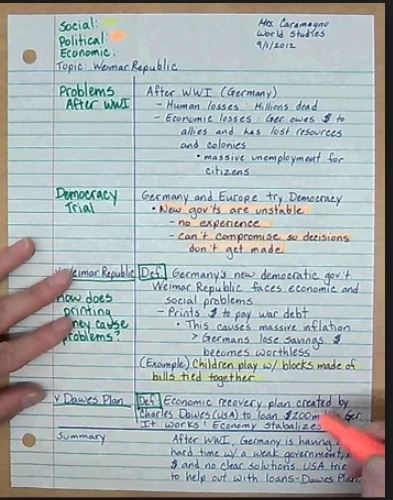 Social:
Political:
Economic:
Mrs. Caramagno
World Studies
9/1/2012
Topic: Weimar Republic
Problems After WWI
After WWI (Germany)
- Human losses: Millions dead
- Economic losses: Ger. owes $ to
allies and has lost resources
and colonies
• massive unemployment for
citizens
Democracy
Trial
Germany and Europe try Democracy
• New gov'ts are unstable
- no experience
- can't compromise so decisions
don't get made
Weimar Republic
Def Germany's new democratic gov't.
Weimar Republic faces economic and
social problems
How does
printing
cause
problems?
- Prints $ to pay war debt
• This causes massive inflation
> Germans lose savings. $
becomes worthless
(Example) Children play w/ blocks made of
bills tied together
v. Dawes Plan
Def Economic recovery plan created by
Charles Dawes (USA) to loan $200 Ger.
It works! Economy stabalizes
Summary
After WWI, Germany is having
hard time w/ a weak government,
$ and no clear solutions. USA
to help out with loans - Dawes Plan